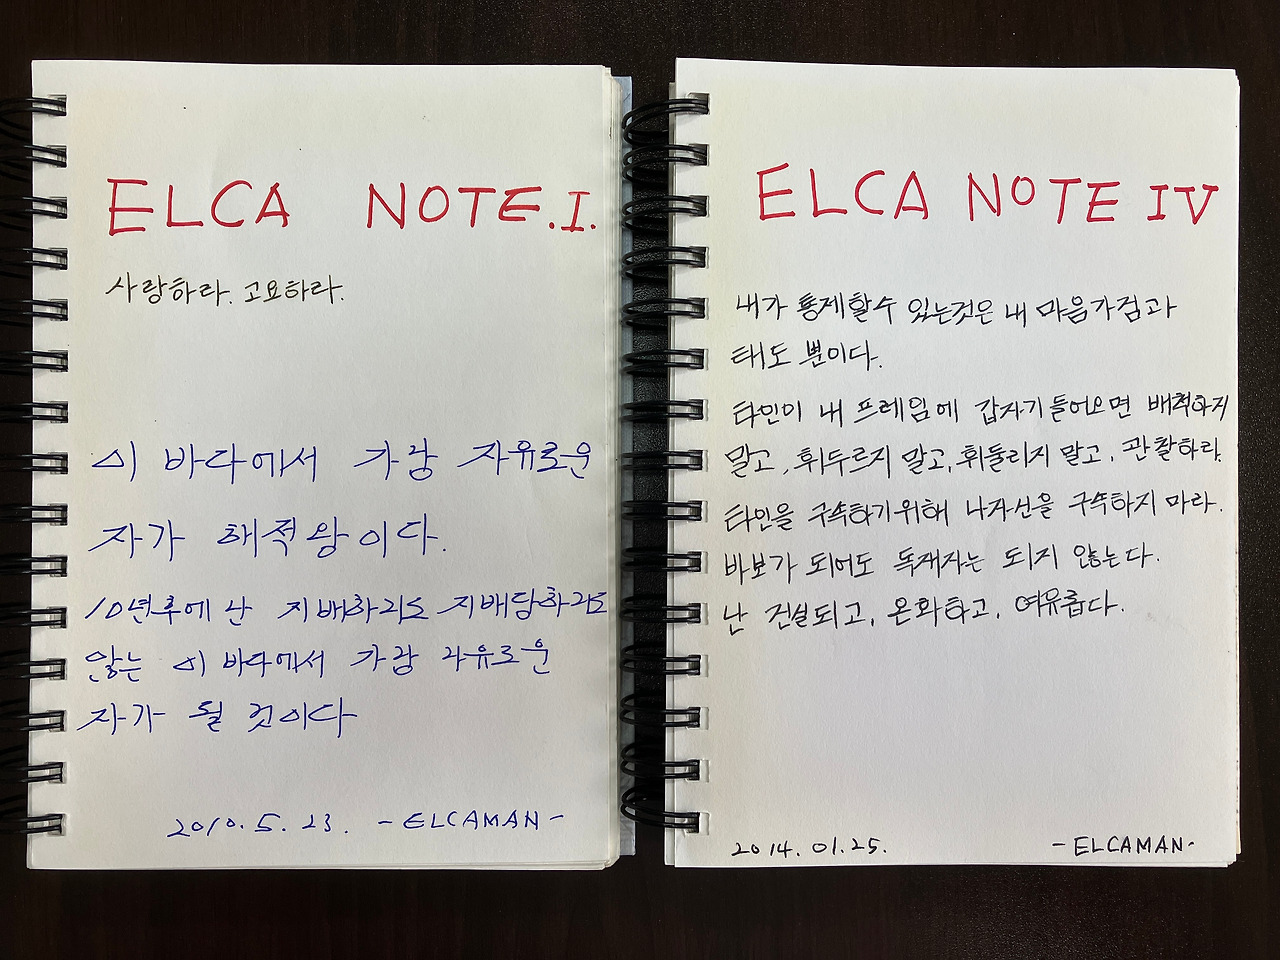 ELCA NOTE.I.
사랑하라. 고요하라.
이 바다에서 가장 자유로운
자가 해적왕이다.
10년후에 난 지배하지도 지배당하지도
않는 이 바다에서 가장 자유로운
자가 될 것이다
2010.5.23. -ELCAMAN-
ELCA NOTE IV
내가 통제할수 있는것은 내 마음가짐과
태도 뿐이다.
타인이 내 프레임에 갑자기 들어오면 배척하지
말고, 휘두르지 말고, 휘둘리지 말고, 관찰하라.
타인을 구속하기위해 나자신을 구속하지 마라.
바보가 되어도 독재자는 되지 않는다.
난 건설되고, 온화하고, 여유롭다.
2014.01.25. -ELCAMAN-